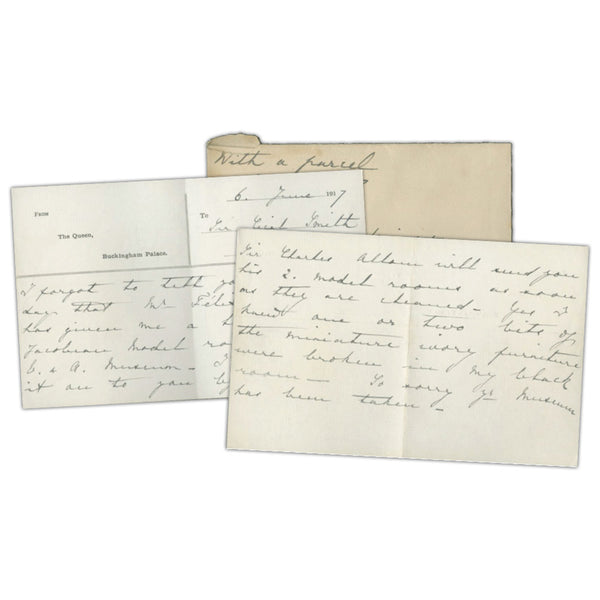 With a parcel
From
The Queen,
Buckingham Palace.
6. June 1917
To
Sir Cecil Smith
I forgot to tell yo
day that Mr
has given me a
Jacobean Model ro
V. & A. Museum -
it on to you by
Sir Charles Allom will send you
his 2. Model rooms as soon
as they are cleaned - Yes I
knew one or two bits of
the miniature ivory furniture
were broken in my black
room - So sorry yr. Museum
has been taken -